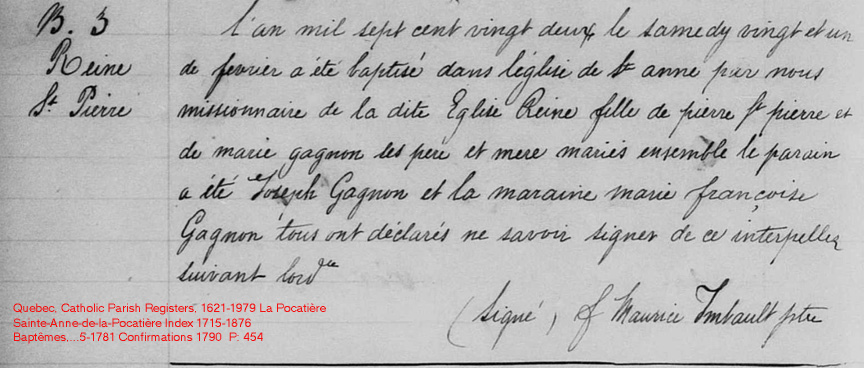 B. 3
Reine
St Pierre
L'an mil sept cent vingt deux le samedy vingt et un
de fevrier a été baptisé dans l'église de Ste anne par nous
missionnaire de la dite Eglise Reine fille de pierre St pierre et
de marie gagnon ses pere et mere mariés ensemble le parain
a été Joseph Gagnon et la maraine marie françoise
Gagnon tous ont déclarés ne savoir signer de ce interpellez
suivant lordce
(Signé, f Maurice Imbault ptre
Quebec, Catholic Parish Registers, 1621-1979 La Pocatière
Sainte-Anne-de-la-Pocatière Index 1715-1876
Baptêmes,...5-1781 Confirmations 1790 P: 454